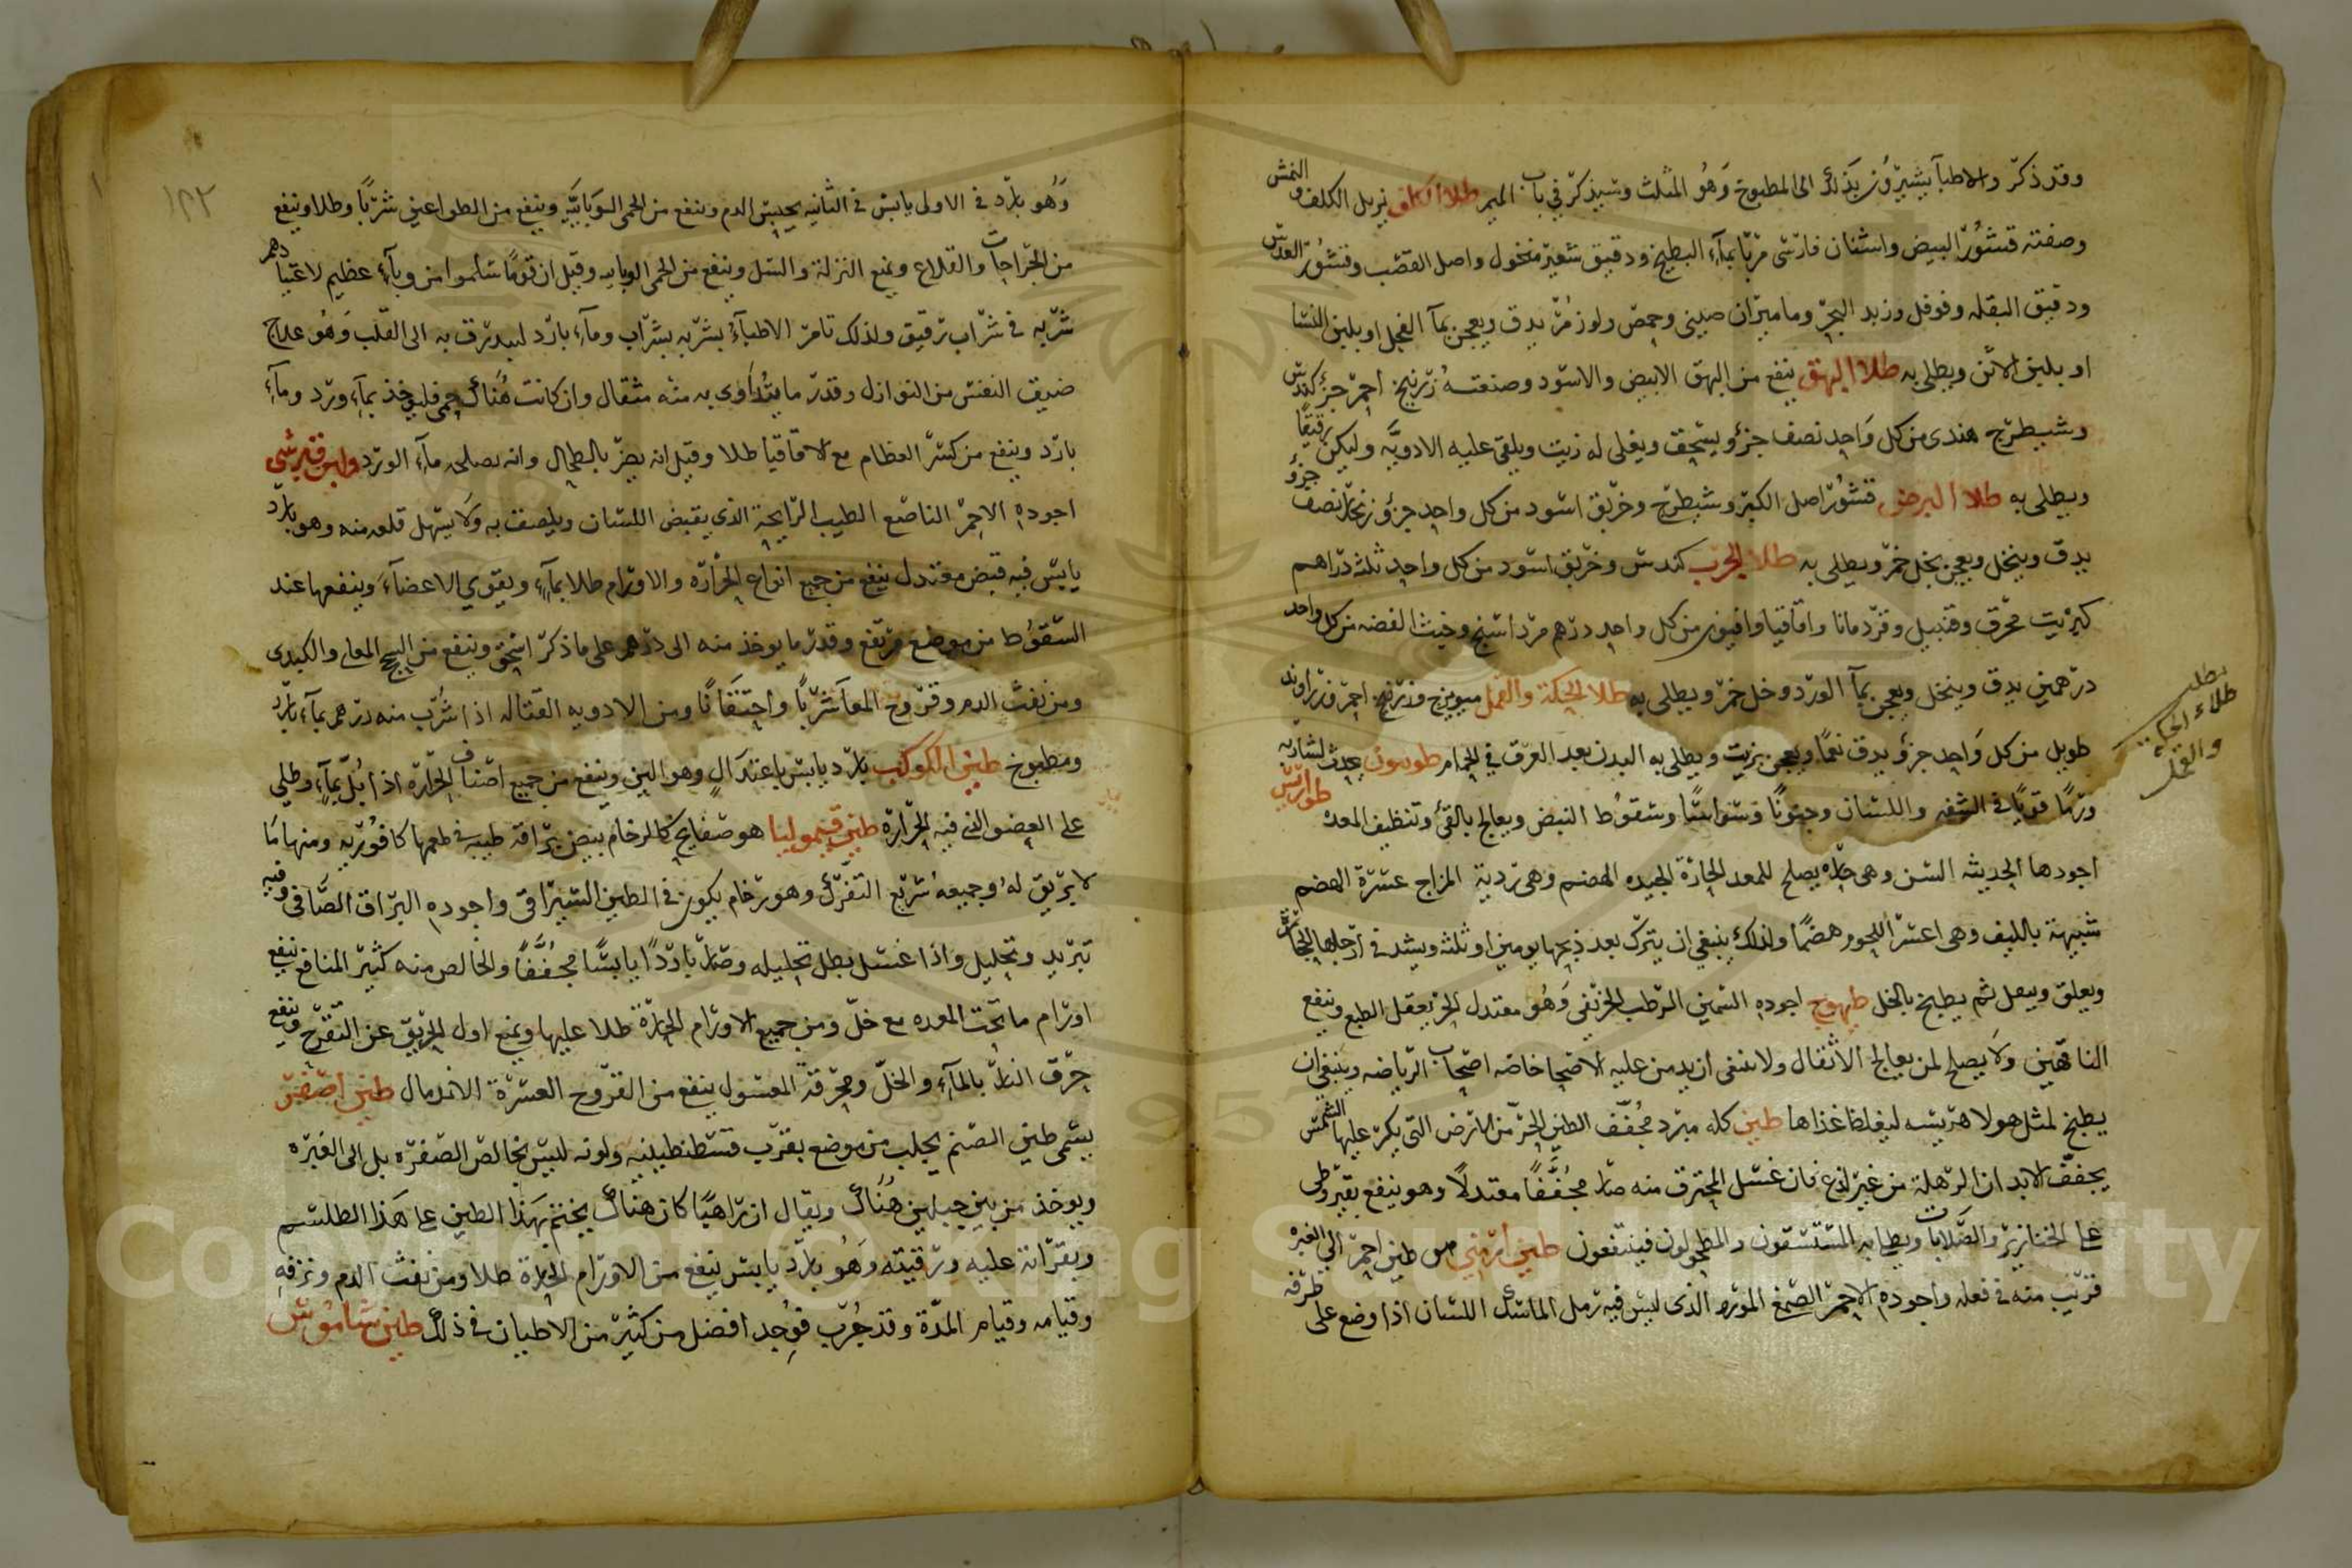 وقد ذكر والاطبآ يشيرون بذلك الى المطبوخ وهو المثلث وسيذكر في باب الميم طلا الكلف يزيل الكلف والنمش
وصفته قشور البيض واشنان فارسى مربّا بمآء البطيخ ودقيق شعير منخول واصل القصب وقشور العدس
ودقيق البقله وفوفل وزبد البحر وماميران صينى وحمص ولوز مر يدق ويعجن بمآ الفجل او بلبن النسا
او بلبن الاتن ويطلى به طلا البهق ينفع من البهق الابيض والاسود وصنعته زرنيخ احمر جزؤ كندس
وشيطرج هندى من كل واحد نصف جزؤ يسحق ويغلى له زيت ويلقى عليه الادويه وليكن رقيقًا
ويطلى به طلا البرص قشور اصل الكبر وشيطرج وخربق اسود من كل واحد جزؤ زنجار نصف جزؤ
يدق وينخل ويعجن بخل خمر ويطلى به طلا الجرب كندس وخربق اسود من كل واحد ثلثة دراهم
كبريت محرق وقنبيل وقردمانا واقاقيا وافيون من كل واحد درهم مرداسنج وخبث الفضه من كل واحد
درهمين يدق وينخل ويعجن بمآ الورد وخل خمر ويطلى به طلا الحكة والقمل ميويزج وزرنيخ احمر وزراوند
طويل من كل واحد جزؤ يدق نعمًا ويعجن بزيت ويطلى به البدن بعد العرق في الحمام يحدث لشاربه
ورمًا قويًا في الشفه واللسان وجنونًا ووسواسًا وسقوط النبض ويعالج بالقئ وتنظيف المعده طواويس
اجودها الحديثه السن وهى حاره يصلح للمعد الحارّة الجيده الهضم وهى ردية المزاج عسرة الهضم
شبيهة بالليف وهى اعسر اللحوم هضمًا ولذلك ينبغي ان يترك بعد ذبحها يومين او ثلثه ويشد في ارجلها الحجارة
ويعلق ثم يطبخ بالخل طيهوج اجوده السمين الرطب الخريفى وهو معتدل الحر يعقل الطبع وينفع
الناقهين ولا يصلح لمن يعالج الاثقال ولا ينبغى ان يدمن عليه الاصحا خاصه اصحاب الرياضه وينبغى ان
يطبخ لمثل هولا هريسه ليغلظ غذاها طين كله مبرد مجفف الطين الحر من الارض التى يكثر عليها الشمس
يجفف الابدان الرهلة من غير لذع فان غسل المحترق منه صار مجففًا معتدلًا وهو ينفع بقيروطى
على الخنازير والصلابات ويطلى به المستسقون والمطحولون فينتفعون طين ارمنى هو طين احمر الى الغبره
قريب منه في فعله واجوده الاحمر الصمغ المورد الذى ليس فيه رمل الماسك اللسان اذا وضع على طرفه
مطلب
طلاء الحكة
والقمل
١٢٢
وهو بارد في الاولى يابس في الثانيه يحبس الدم وينفع من الحمى الوبائيه وينفع من الطواعين شربًا وطلا وينفع
من الجراحات والقلاع ويمنع النزلة والسل وينفع من الحمى الوبايه وقيل ان قومًا سلموا من وبآء عظيم لاعتيادهم
شربه في شراب رقيق ولذلك تامر الاطبآء بشربه بشراب ومآء بارد ليبدرق به الى القلب وهو علاج
ضيق النفس من النوازل وقدر ما يتداوى به منه مثقال وان كانت هناك حمى فليوخذ بمآء ورد ومآء
بارد وينفع من كسر العظام مع الاقاقيا طلا وقيل انه يضر بالطحال وانه يصلحه مآء الورد
اجوده الاحمر الناصع الطيب الرايحة الذى يقبض اللسان ويلصق به ولا يسهل قلعه منه وهو بارد
يابس فيه قبض معتدل ينفع من جميع انواع الحرارة والاورام طلا بمآء ويقوي الاعضآء وينفعها عند
السقوط من موضع مرتفع وقدر ما يوخذ منه الى درهم على ما ذكر اسحق وينفع من السحج المعاى والكبدى
ومن نفث الدم وقروح المعا شربًا واحتقانًا ومن الادويه القتاله اذا شرب منه درهم بمآء بارد
ومطبوخ طين الكوكب بارد يابس باعتدال وهو الين وينفع من جميع اصناف الحرارة اذا بُلّ بمآء وطلى
على العضو الذى فيه الحرارة طين قيموليا هو صفايح كالرخام بيض براقة طيبه في طعمها كافوريه ومنها ما
لا بريق له وجميعه سريع التفرك وهو رخام يكون في الطين السيرافى واجوده البراق الصافى وفيه
تبريد وتحليل واذا غسل بطل تحليله وصار باردًا يابسًا مجففًا والخالص منه كثير المنافع ينفع
اورام ما تحت المعده مع خلّ ومن جميع الاورام الحارّة طلا عليها ويمنع اول الحريق عن التقرح وينفع
حرق النار بالمآء والخلّ ومحرقة المغسول ينفع من القروح العسرة الاندمال طين اصفر
يسمى طين الصنم يجلب من موضع بقرب قسطنطينيه ولونه ليس بخالص الصفره بل الى الغبره
ويوخذ من بين جبلين هناك ويقال ان راهبًا كان هناك يختم بهذا الطين على هذا الطلسم
ويقرأ عليه ورقيته وهو بارد يابس ينفع من الاورام الحارة طلا ومن نفث الدم ونزفه
وقيامه وقيام المدّة وقد جُرّب فوُجد افضل من كثير من الاطيان في ذلك طين شاموس
Copyright © King Saud University
1957